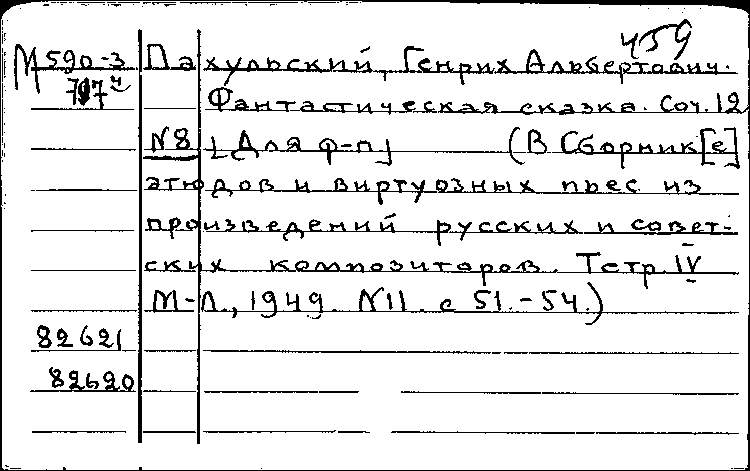 459
М 590-3 Пахульский, Генрих Альбертович.
Фантастическая сказка. Соч. 12
№8 [Для ф-п] (В Сборник[е]
этюдов и виртуозных пьес из
произведений русских и совет-
ских композиторов. Тетр. IV
М-Л., 1949. №11. с 51.-54.)
82621
82620